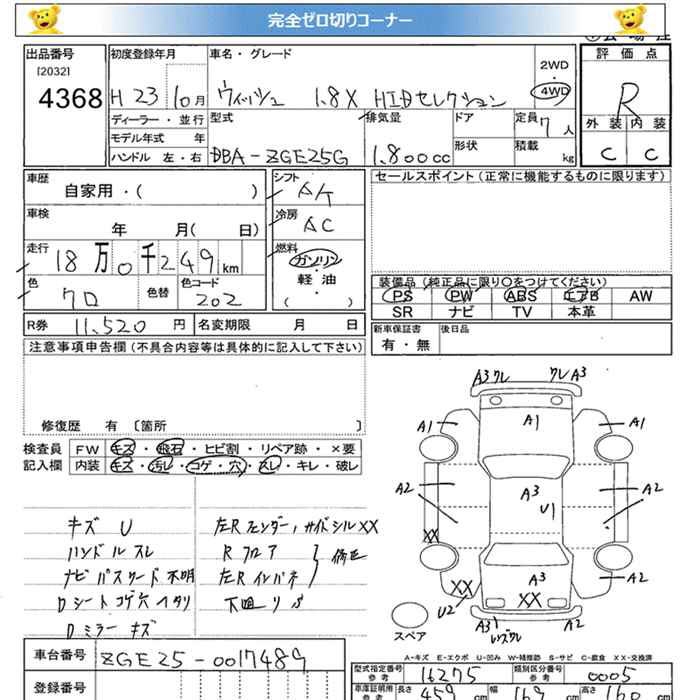 完全ゼロ切りコーナー
出品番号 初度登録年月 車名・グレード 評価点
[2032] 2WD
4368 H 23 10月 ウィッシュ 1.8X HIDセレクション 4WD R
ディーラー・並行 型式 排気量 ドア 定員 7人 外装 内装
モデル年式 年 形状 積載 C C
ハンドル 左・右 DBA-ZGE25G 1,800cc kg
車歴 シフト セールスポイント (正常に機能するものに限ります)
自家用・( ) AT
車検 冷房
年 月( 日) AC
走行 燃料
18万0千249km ガソリン
色 色替 色コード 軽・油 装備品 (純正品に限り○をつけてください)
クロ 202 ( ) PS PW ABS エアB AW
SR ナビ TV 本革
R券 11,520 円 名変期限 月 日 新車保証書 後日品
有・無
注意事項申告欄 (不具合内容等は具体的に記入して下さい)
修復歴 有 〔箇所 〕
検査員 FW キズ・飛石・ヒビ割・リペア跡・×要
記入欄 内装 キズ・汚レ・コゲ・穴・スレ・キレ・破レ
キズ U 左Rフェンダー,サイドシルXX
ハンドルスレ Rフロア 修正
ナビパスワード不明 左Rインパネ
Dシートコゲ穴ヘタリ 下廻りS
Dミラーキズ
A3 ワレ ワレ A3
A1 A1 A1
A2 A3 U1 A2
XX
A3 A2
XX U2 XX
A3 レンズワレ A2
スペア
A-キズ E-エクボ U-凹み W-補修跡 S-サビ C-腐食 XX-交換済
車台番号 ZGE25-0017489
登録番号
型式指定番号 参考 16275 類別区分番号 参考 0005
車庫証明用 参考 長さ 459 幅 169 高さ 160